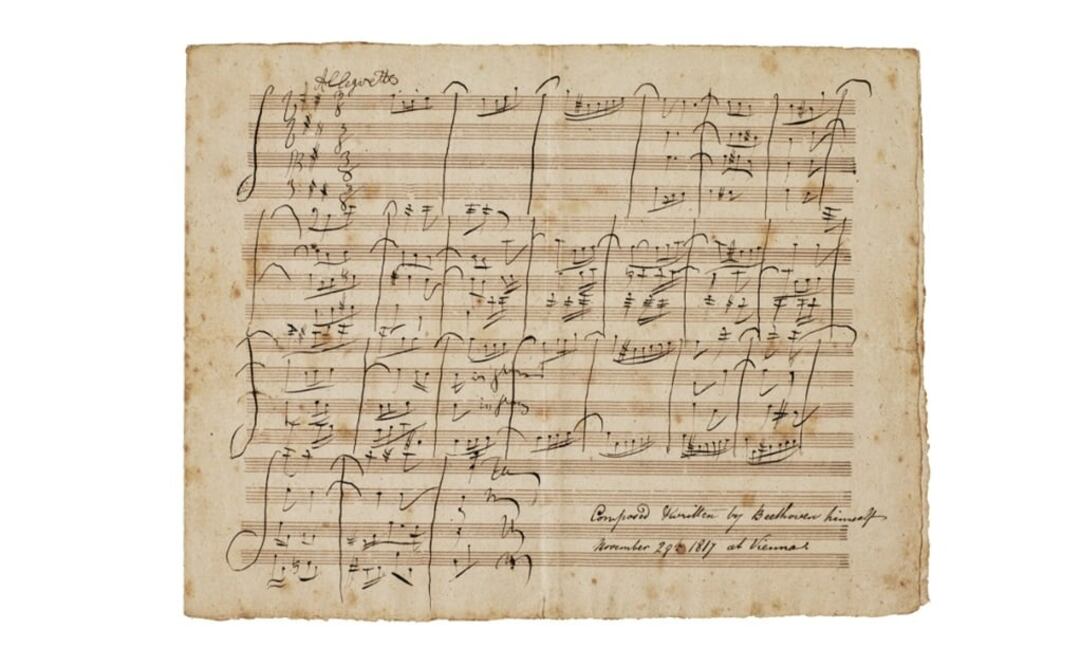 Allegretto
Composed & written by Beethoven himself
November 29th 1817 at Vienna